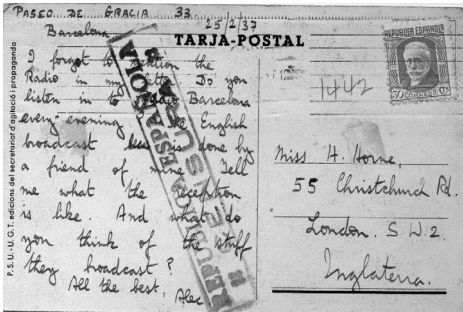 PASEO DE GRACIA 33
25/2/37
Barcelona
TARJA-POSTAL
I forgot to mention the
Radio in my letter. Do you
listen in to Radio Barcelona
every evening English
broadcast is done by
a friend of mine. Tell
me what the reception
is like. And what do
you think of the stuff
they broadcast?
All the best,
Alec
REPUBLICA ESPAÑOLA
CENSURA
REPUBLICA ESPAÑOLA
50
1442
Miss H. Horne,
55 Christchurch Rd.
London. S.W.2.
Inglaterra.
P.S.U.-U.G.T. edicions del secretariat d'agitació i propaganda